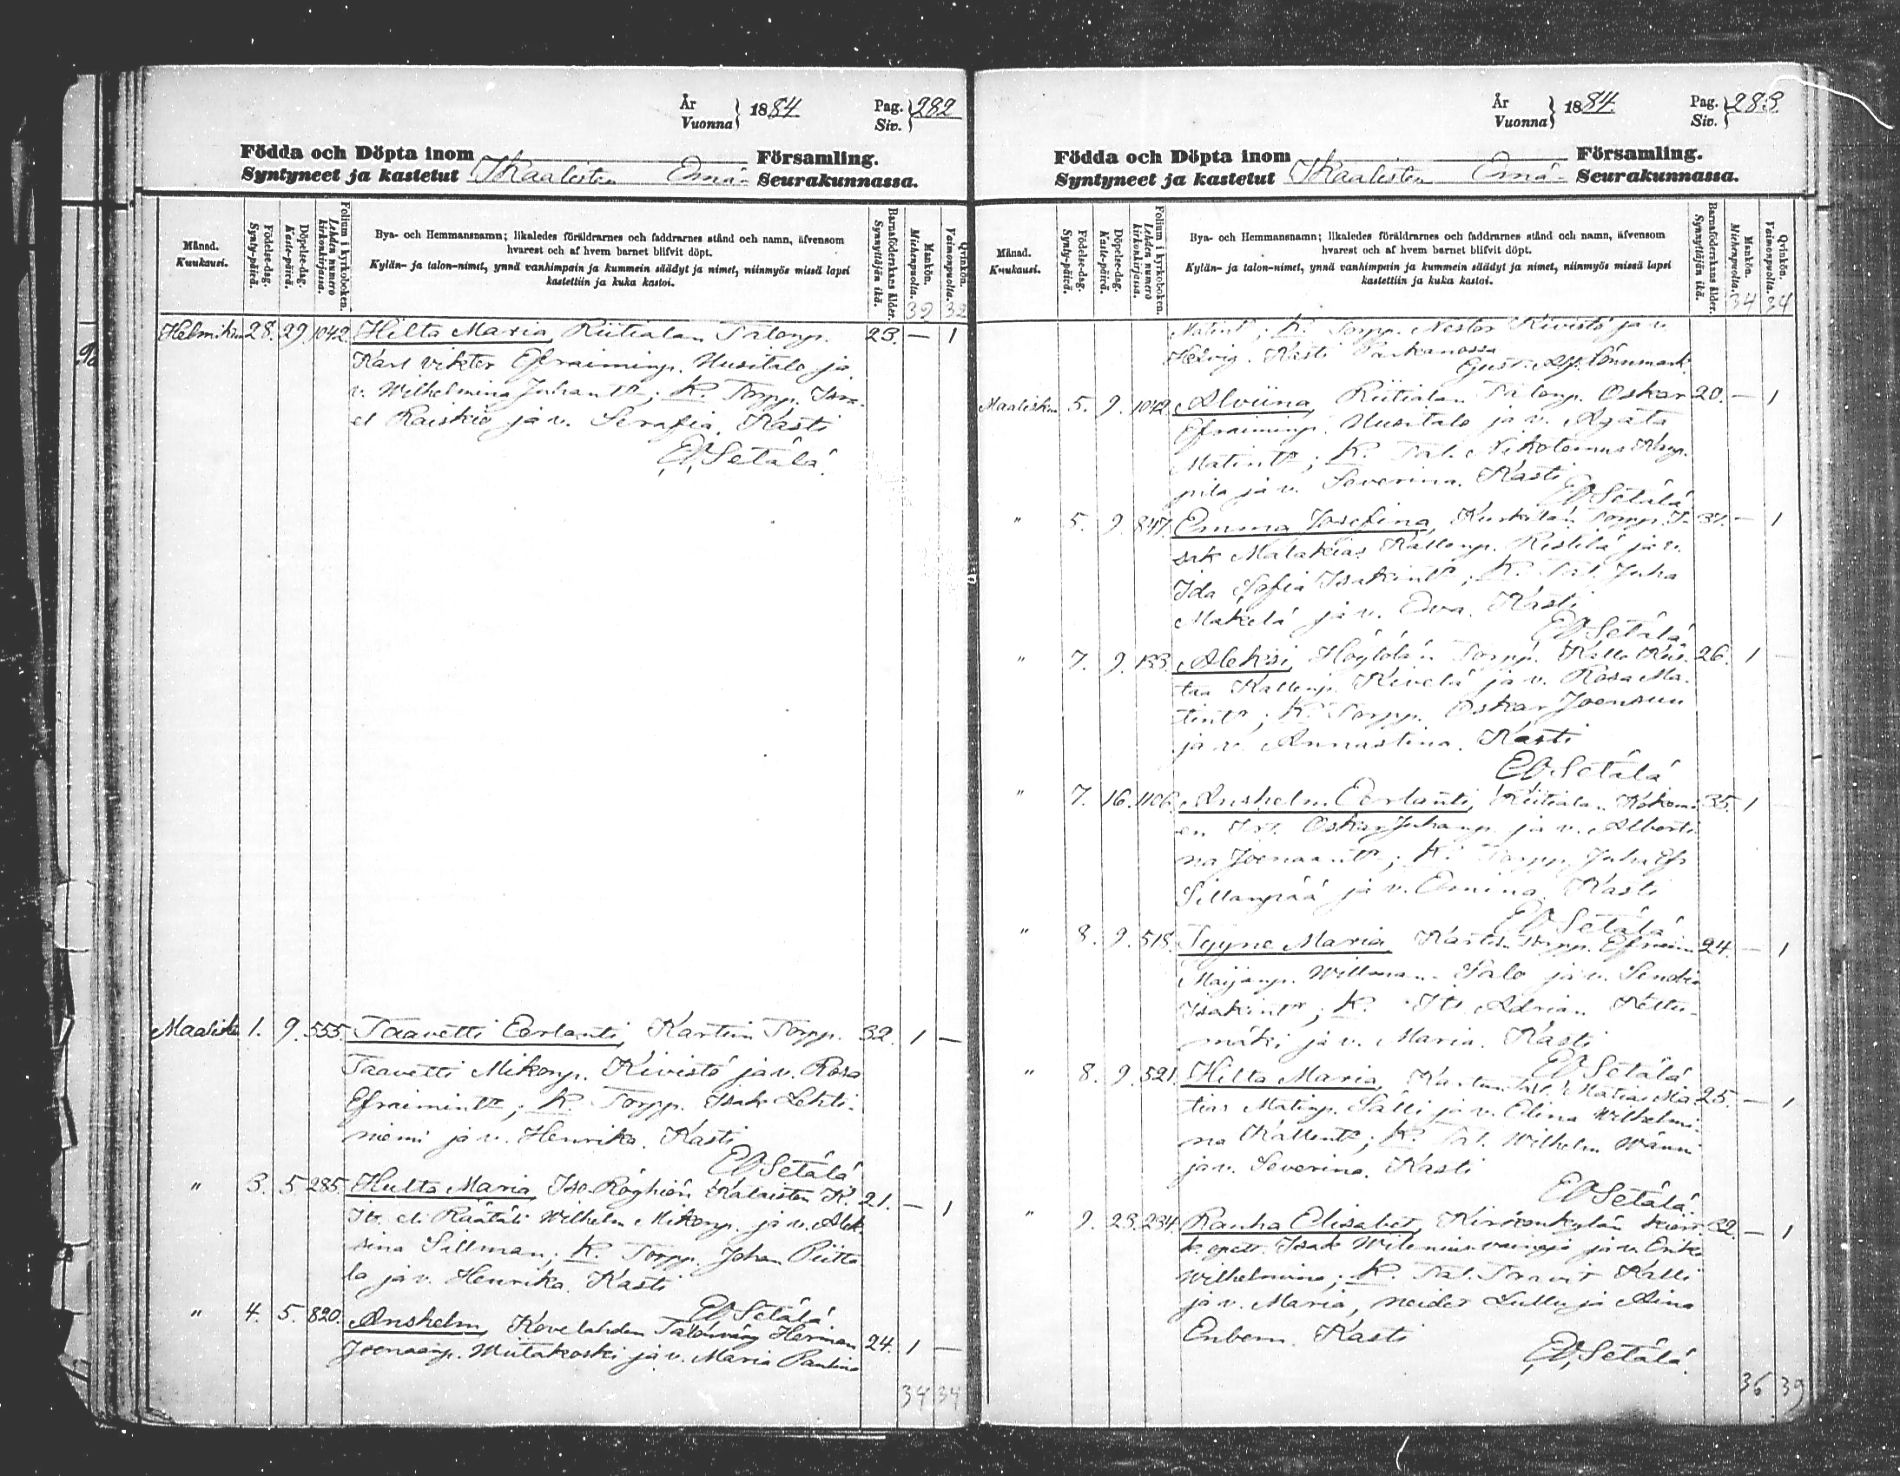 År
Vuonna } 1884.
Pag.
Siv. } 282
Födda och Döpta inom
Syntyneet ja kastetut Ikaalisten Emä-
Församling.
Seurakunnassa.
Månad.
Kuukausi.
Födelse-dag.
Synty-päivä.
Döpelse-dag.
Kaste-päivä.
Folium i kyrkoboken.
Lehden numero kirkonkirjassa.
Bya- och Hemmansnamn; likaledes föräldrarnes och faddrarnes stånd och namn, äfvensom
hvarest och af hvem barnet blifvit döpt.
Kylän- ja talon-nimet, ynnä vanhimpain ja kummein säädyt ja nimet, niinmyös missä lapsi
kastettiin ja kuka kastoi.
Barnaföderskans ålder.
Synnyttäjän ikä.
Mankön.
Miehenpuolta.
Qvinkön.
Vaimonpuolta.
Helmikuu 28. 29. 1042. Hilta Maria, Riitialan Talonp. 23. — 1
Karl Vikter Efraiminp. Uusitalo ja
v. Wilhelmina Juhantr; K. Torpp. Isra-
el Raiskio ja v. Serafia. Kasti
EV Setälä.
Maalisk. 1. 9. 555. Taavetti Eerlanti, Kartun Torpp. 32. 1 —
Taavetti Mikonp. Kivistö ja v. Rosa
Efraimintr; K. Torpp. Isak Lehti-
niemi ja v. Henrika. Kasti
EV Setälä
" 3. 5 285. Hilta Maria, Iso Röyhiön Kalaisten K. 21. — 1
Itr. eli Räätäli Wilhelm Mikonp. ja v. Alek-
sina Sillman; K. Torpp. Johan Piitta-
la ja v. Henrika. Kasti
EV Setälä
" 4. 5. 820. Anshelm, Kovelahden Talonväng Herman 24. 1 —
Joonaanp. Miitakoski ja v. Maria Paulina
34 34
År
Vuonna } 1884.
Pag.
Siv. } 283
Födda och Döpta inom
Syntyneet ja kastetut Ikaalisten Emä-
Församling.
Seurakunnassa.
Månad.
Kuukausi.
Födelse-dag.
Synty-päivä.
Döpelse-dag.
Kaste-päivä.
Folium i kyrkoboken.
Lehden numero kirkonkirjassa.
Bya- och Hemmansnamn; likaledes föräldrarnes och faddrarnes stånd och namn, äfvensom
hvarest och af hvem barnet blifvit döpt.
Kylän- ja talon-nimet, ynnä vanhimpain ja kummein säädyt ja nimet, niinmyös missä lapsi
kastettiin ja kuka kastoi.
Barnaföderskans ålder.
Synnyttäjän ikä.
Mankön.
Miehenpuolta. 34
Qvinkön.
Vaimonpuolta. 34
Matintr; K. Torpp. Nestor Kivistö ja v.
Helvig. Kasti Parkanossa
Gust. Alf. Lönnmark.
Maalisk. 5. 9. 1042. Alviina, Riitialan Talonp. Oskar 20. — 1
Efraiminp. Uusitalo ja v. Agata
Matintr; K. Tal. Nikotemus Kamp-
pila ja v. Severina. Kasti
EV Setälä
" 5. 9. 847. Emma Josefina, Torpp. I- 31. — 1
sak Malakias Kallenp. Ristilä ja v.
Ida Sofia Isakintr; K. Tal. Juha
Mäkelä ja v. Eva. Kasti
EV Setälä
" 7. 9. 133. Aleksi, Torpp. Kalle Kus- 26. 1 —
taa Kallenp. Kivelä ja v. Rosa Ma-
tintr; K. Torpp. Oskar Joensuu
ja v. Annastina. Kasti
EV Setälä
" 7. 16. 1106. Anshelm Eerlanti, Riitialan 35. 1 —
Oskar Juhanp. ja v. Alberti-
na Joonaantr; K. Torpp. Juha Efr.
Sillanpää ja v. Emina. Kasti
EV Setälä
" 8. 9. 518. Tyyne Maria, Kartun torpp. Efraim 24. — 1
Maijanp. Willman Salo ja v. Senda
Isakintr; K. Itr. Adrian Kettu-
mäki ja v. Maria. Kasti
EV Setälä
" 8. 9. 521. Hilta Maria, Kartun Tal. Matias Ma- 25. — 1
tias Matinp. Sälli ja v. Edina Wilhelmi-
na Kallentr; K. Tal. Wilhelm Wänni
ja v. Severina. Kasti
EV Setälä.
" 9. 23. 234. Rauha Elisabet, Kirkonkylän 32. — 1
Isak Wilenius vainaja ja v. Erika
Wilhelmina; K. Tal. Taavit Kalli
ja v. Maria, neider Lullu ja Aina
Enbom. Kasti
EV Setälä.
36 39